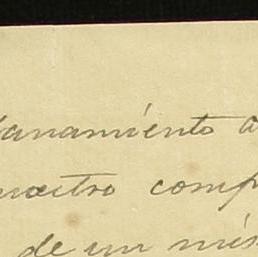 anamiento a
maestro comp
de un mis